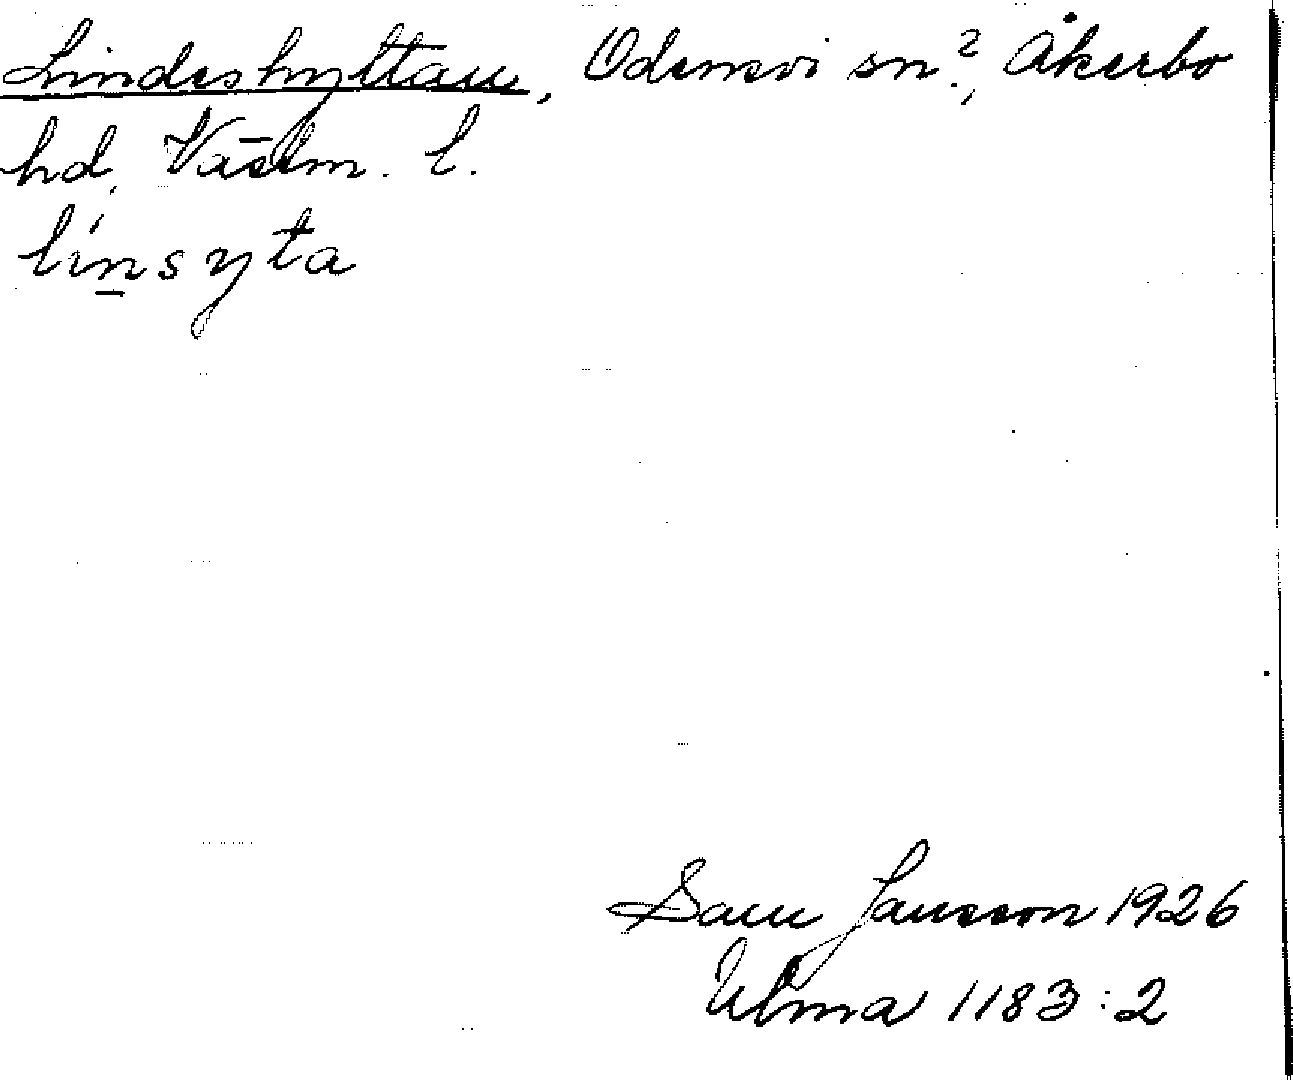 Lindeshyttan, Odensvi sn?, Åkerbo
hd, Västm. l.
li´nsyta
Sam Jansson 1926
Ulma 1183:2